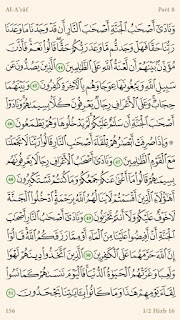 Al-A'rāf Part 8
وَنَادَىٰٓ أَصۡحَٰبُ ٱلۡجَنَّةِ أَصۡحَٰبَ ٱلنَّارِ أَن قَدۡ وَجَدۡنَا مَا وَعَدَنَا
رَبُّنَا حَقّٗا فَهَلۡ وَجَدتُّم مَّا وَعَدَ رَبُّكُمۡ حَقّٗاۖ قَالُواْ نَعَمۡۚ فَأَذَّنَ
مُؤَذِّنُۢ بَيۡنَهُمۡ أَن لَّعۡنَةُ ٱللَّهِ عَلَى ٱلظَّٰلِمِينَ 44 ٱلَّذِينَ يَصُدُّونَ عَن
سَبِيلِ ٱللَّهِ وَيَبۡغُونَهَا عِوَجٗا وَهُم بِٱلۡأٓخِرَةِ كَٰفِرُونَ 45 وَبَيۡنَهُمَا
حِجَابٞۚ وَعَلَى ٱلۡأَعۡرَافِ رِجَالٞ يَعۡرِفُونَ كُلَّۢا بِسِيمَىٰهُمۡۚ وَنَادَوۡاْ
أَصۡحَٰبَ ٱلۡجَنَّةِ أَن سَلَٰمٌ عَلَيۡكُمۡۚ لَمۡ يَدۡخُلُوهَا وَهُمۡ يَطۡمَعُونَ 46
۞ وَإِذَا صُرِفَتۡ أَبۡصَٰرُهُمۡ تِلۡقَآءَ أَصۡحَٰبِ ٱلنَّارِ قَالُواْ رَبَّنَا لَا تَجۡعَلۡنَا
مَعَ ٱلۡقَوۡمِ ٱلظَّٰلِمِينَ 47 وَنَادَىٰٓ أَصۡحَٰبُ ٱلۡأَعۡرَافِ رِجَالٗا يَعۡرِفُونَهُم
بِسِيمَىٰهُمۡ قَالُواْ مَآ أَغۡنَىٰ عَنكُمۡ جَمۡعُكُمۡ وَمَا كُنتُمۡ تَسۡتَكۡبِرُونَ 48
أَهَٰٓؤُلَآءِ ٱلَّذِينَ أَقۡسَمۡتُمۡ لَا يَنَالُهُمُ ٱللَّهُ بِرَحۡمَةٍۚ ٱدۡخُلُواْ ٱلۡجَنَّةَ
لَا خَوۡفٌ عَلَيۡكُمۡ وَلَآ أَنتُمۡ تَحۡزَنُونَ 49 وَنَادَىٰٓ أَصۡحَٰبُ ٱلنَّارِ أَصۡحَٰبَ
ٱلۡجَنَّةِ أَنۡ أَفِيضُواْ عَلَيۡنَا مِنَ ٱلۡمَآءِ أَوۡ مِمَّا رَزَقَكُمُ ٱللَّهُۚ قَالُوٓاْ
إِنَّ ٱللَّهَ حَرَّمَهُمَا عَلَى ٱلۡكَٰفِرِينَ 50 ٱلَّذِينَ ٱتَّخَذُواْ دِينَهُمۡ لَهۡوٗا
وَلَعِبٗا وَغَرَّتۡهُمُ ٱلۡحَيَوٰةُ ٱلدُّنۡيَاۚ فَٱلۡيَوۡمَ نَنسَىٰهُمۡ كَمَا نَسُواْ
لِقَآءَ يَوۡمِهِمۡ هَٰذَا وَمَا كَانُواْ بِـَٔايَٰتِنَا يَجۡحَدُونَ 51
156 1/2 Hizb 16